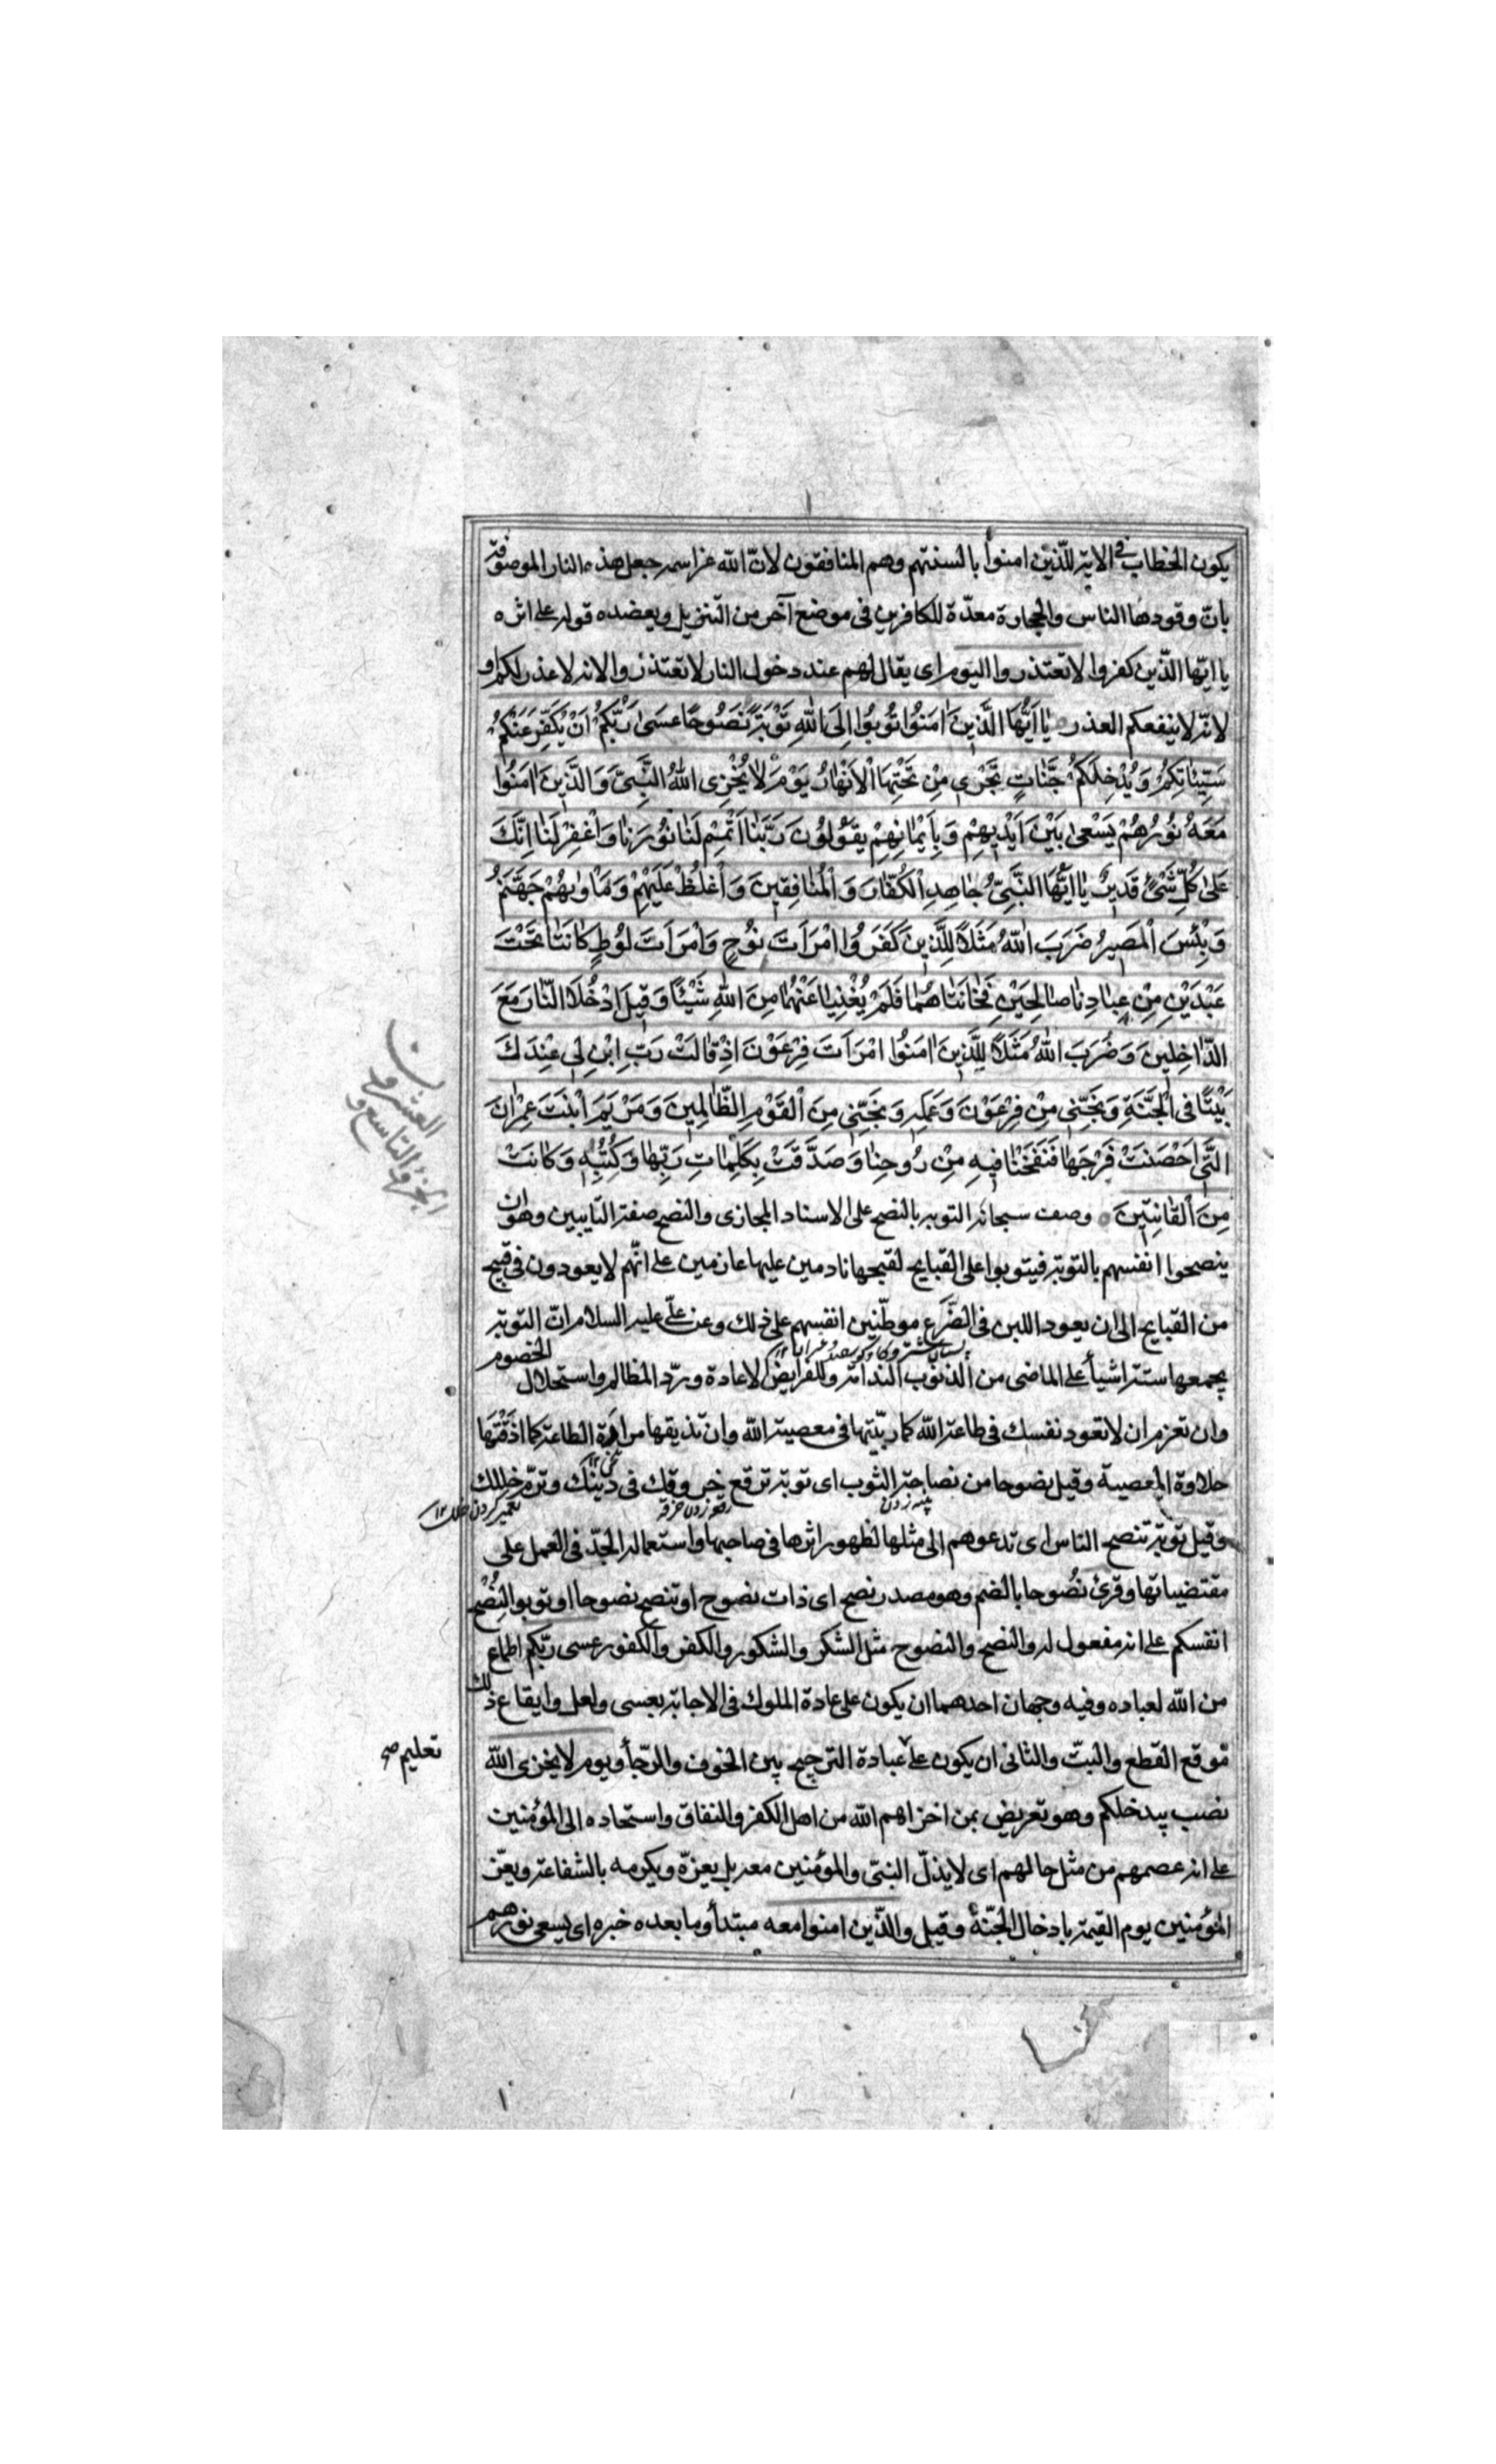 يكون الخطاب في الاية للّذين امنوا بالسنتهم وهم المنافقون لانّ الله عز اسمه جعل هذه النار الموصوفة
بانّ وقودها الناس والحجارة معدّة للكافرين فى موضع آخر من التنزيل ويعضده قوله على اثره
يا ايّها الّذين كفروا لا تعتذروا اليوم اى يقال لهم عند دخول النار لا تعتذروا لانه لا عذر لكم او
لانّه لا ينفعكم العذر يٰا اَيُّهَا الَّذِينَ اٰمَنُوا تُوبُوا اِلَى اللهِ تَوْبَةً نَصُوحًا عَسىٰ رَبُّكُمْ اَنْ يُكَفِّرَ عَنْكُمْ
سَيِّئٰاتِكُمْ وَيُدْخِلَكُمْ جَنّٰاتٍ تَجْرِى مِنْ تَحْتِهَا الْاَنْهٰارُ يَوْمَ لٰا يُخْزِى اللهُ النَّبِىَّ وَالَّذِينَ اٰمَنُوا
مَعَهُ نُورُهُمْ يَسْعىٰ بَيْنَ اَيْدِيهِمْ وَبِاَيْمٰانِهِمْ يَقُولُونَ رَبَّنٰا اَتْمِمْ لَنٰا نُورَنٰا وَاغْفِرْ لَنٰا اِنَّكَ
عَلىٰ كُلِّ شَىْءٍ قَدِيرٌ يٰا اَيُّهَا النَّبِىُّ جٰاهِدِ الْكُفّٰارَ وَالْمُنٰافِقِينَ وَاغْلُظْ عَلَيْهِمْ وَمَأْوٰيهُمْ جَهَنَّمُ
وَبِئْسَ الْمَصِيرُ ضَرَبَ اللهُ مَثَلًا لِلَّذِينَ كَفَرُوا امْرَاَتَ نُوحٍ وَامْرَاَتَ لُوطٍ كٰانَتٰا تَحْتَ
عَبْدَيْنِ مِنْ عِبٰادِنٰا صٰالِحَيْنِ فَخٰانَتٰاهُمٰا فَلَمْ يُغْنِيٰا عَنْهُمٰا مِنَ اللهِ شَيْئًا وَقِيلَ ادْخُلَا النّٰارَ مَعَ
الدّٰاخِلِينَ وَضَرَبَ اللهُ مَثَلًا لِلَّذِينَ اٰمَنُوا امْرَاَتَ فِرْعَوْنَ اِذْ قٰالَتْ رَبِّ ابْنِ لِى عِنْدَكَ
بَيْتًا فِى الْجَنَّةِ وَنَجِّنِى مِنْ فِرْعَوْنَ وَعَمَلِهِ وَنَجِّنِى مِنَ الْقَوْمِ الظّٰالِمِينَ وَمَرْيَمَ ابْنَتَ عِمْرٰانَ
الَّتِى اَحْصَنَتْ فَرْجَهٰا فَنَفَخْنٰا فِيهِ مِنْ رُوحِنٰا وَصَدَّقَتْ بِكَلِمٰاتِ رَبِّهٰا وَكُتُبِهِ وَكٰانَتْ
مِنَ الْقٰانِتِينَ وصف سبحانه التوبة بالنصح على الاسناد المجازى والنصح صفة التايبين وهو ان
ينصحوا انفسهم بالتوبة فيتوبوا على القبايح لقبحها نادمين عليها عازمين على انّهم لا يعودون فى قبيح
من القبايح الى ان يعود اللبن فى الضّرع موطّنين انفسهم على ذلك وعن علّى عليه السلام انّ التوبة
يجمعها ستة اشيأ على الماضى من الذنوب الندامة وللفرايض الاعادة وردّ المظالم واستحلال الخصوم
وان تعزم ان لا تعود نفسك فى طاعة الله كما ربّيتها فى معصية الله وان تذيقها مرارة الطاعة كما اذقتها
حلاوة المعصية وقيل نصوحا من نصاحة الثوب اى توبة ترقع خروقك فى دينك وترمّ خللك
پینه زدن
رقعه زدن خرقه
تعمير كردن خلل ١٢
وقيل توبة تنصح الناس اى تدعوهم الى مثلها لظهور اثرها فى صاحبها واستعماله الجدّ فى العمل على
مقتضياتها وقرئ نُصُوحا بالضم وهو مصدر نصح اى ذات نصوح او تنصح نصوحا او توبوا لنُصْح
انفسكم على انه مفعول له والنصح والنصوح مثل الشكر والشكور والكفر والكفور عسى ربّكم اطماع
من الله لعباده وفيه وجهان احدهما ان يكون على عادة الملوك فى الاجابة بعسى ولعل وايقاع ذلك
موقع القطع والبتّ والثانى ان يكون على عبادة الترجيح بين الخوف والرّجأ ويوم لا يخزى الله
تعليم صح
نصب بيدخلكم وهو تعريض بمن اخزاهم الله من اهل الكفر والنفاق واستحماده الى المؤمنين
على انه عصمهم من مثل حالهم اى لا يذلّ النبىّ والمؤمنين معه بل يعزّه ويكرمه بالشفاعة ويعزّ
المؤمنين يوم القيمة بادخال الجنّة وقيل والّذين امنوا معه مبتدأ وما بعده خبره اى يسعى نورهم
الجزؤ التاسع و
العشرون